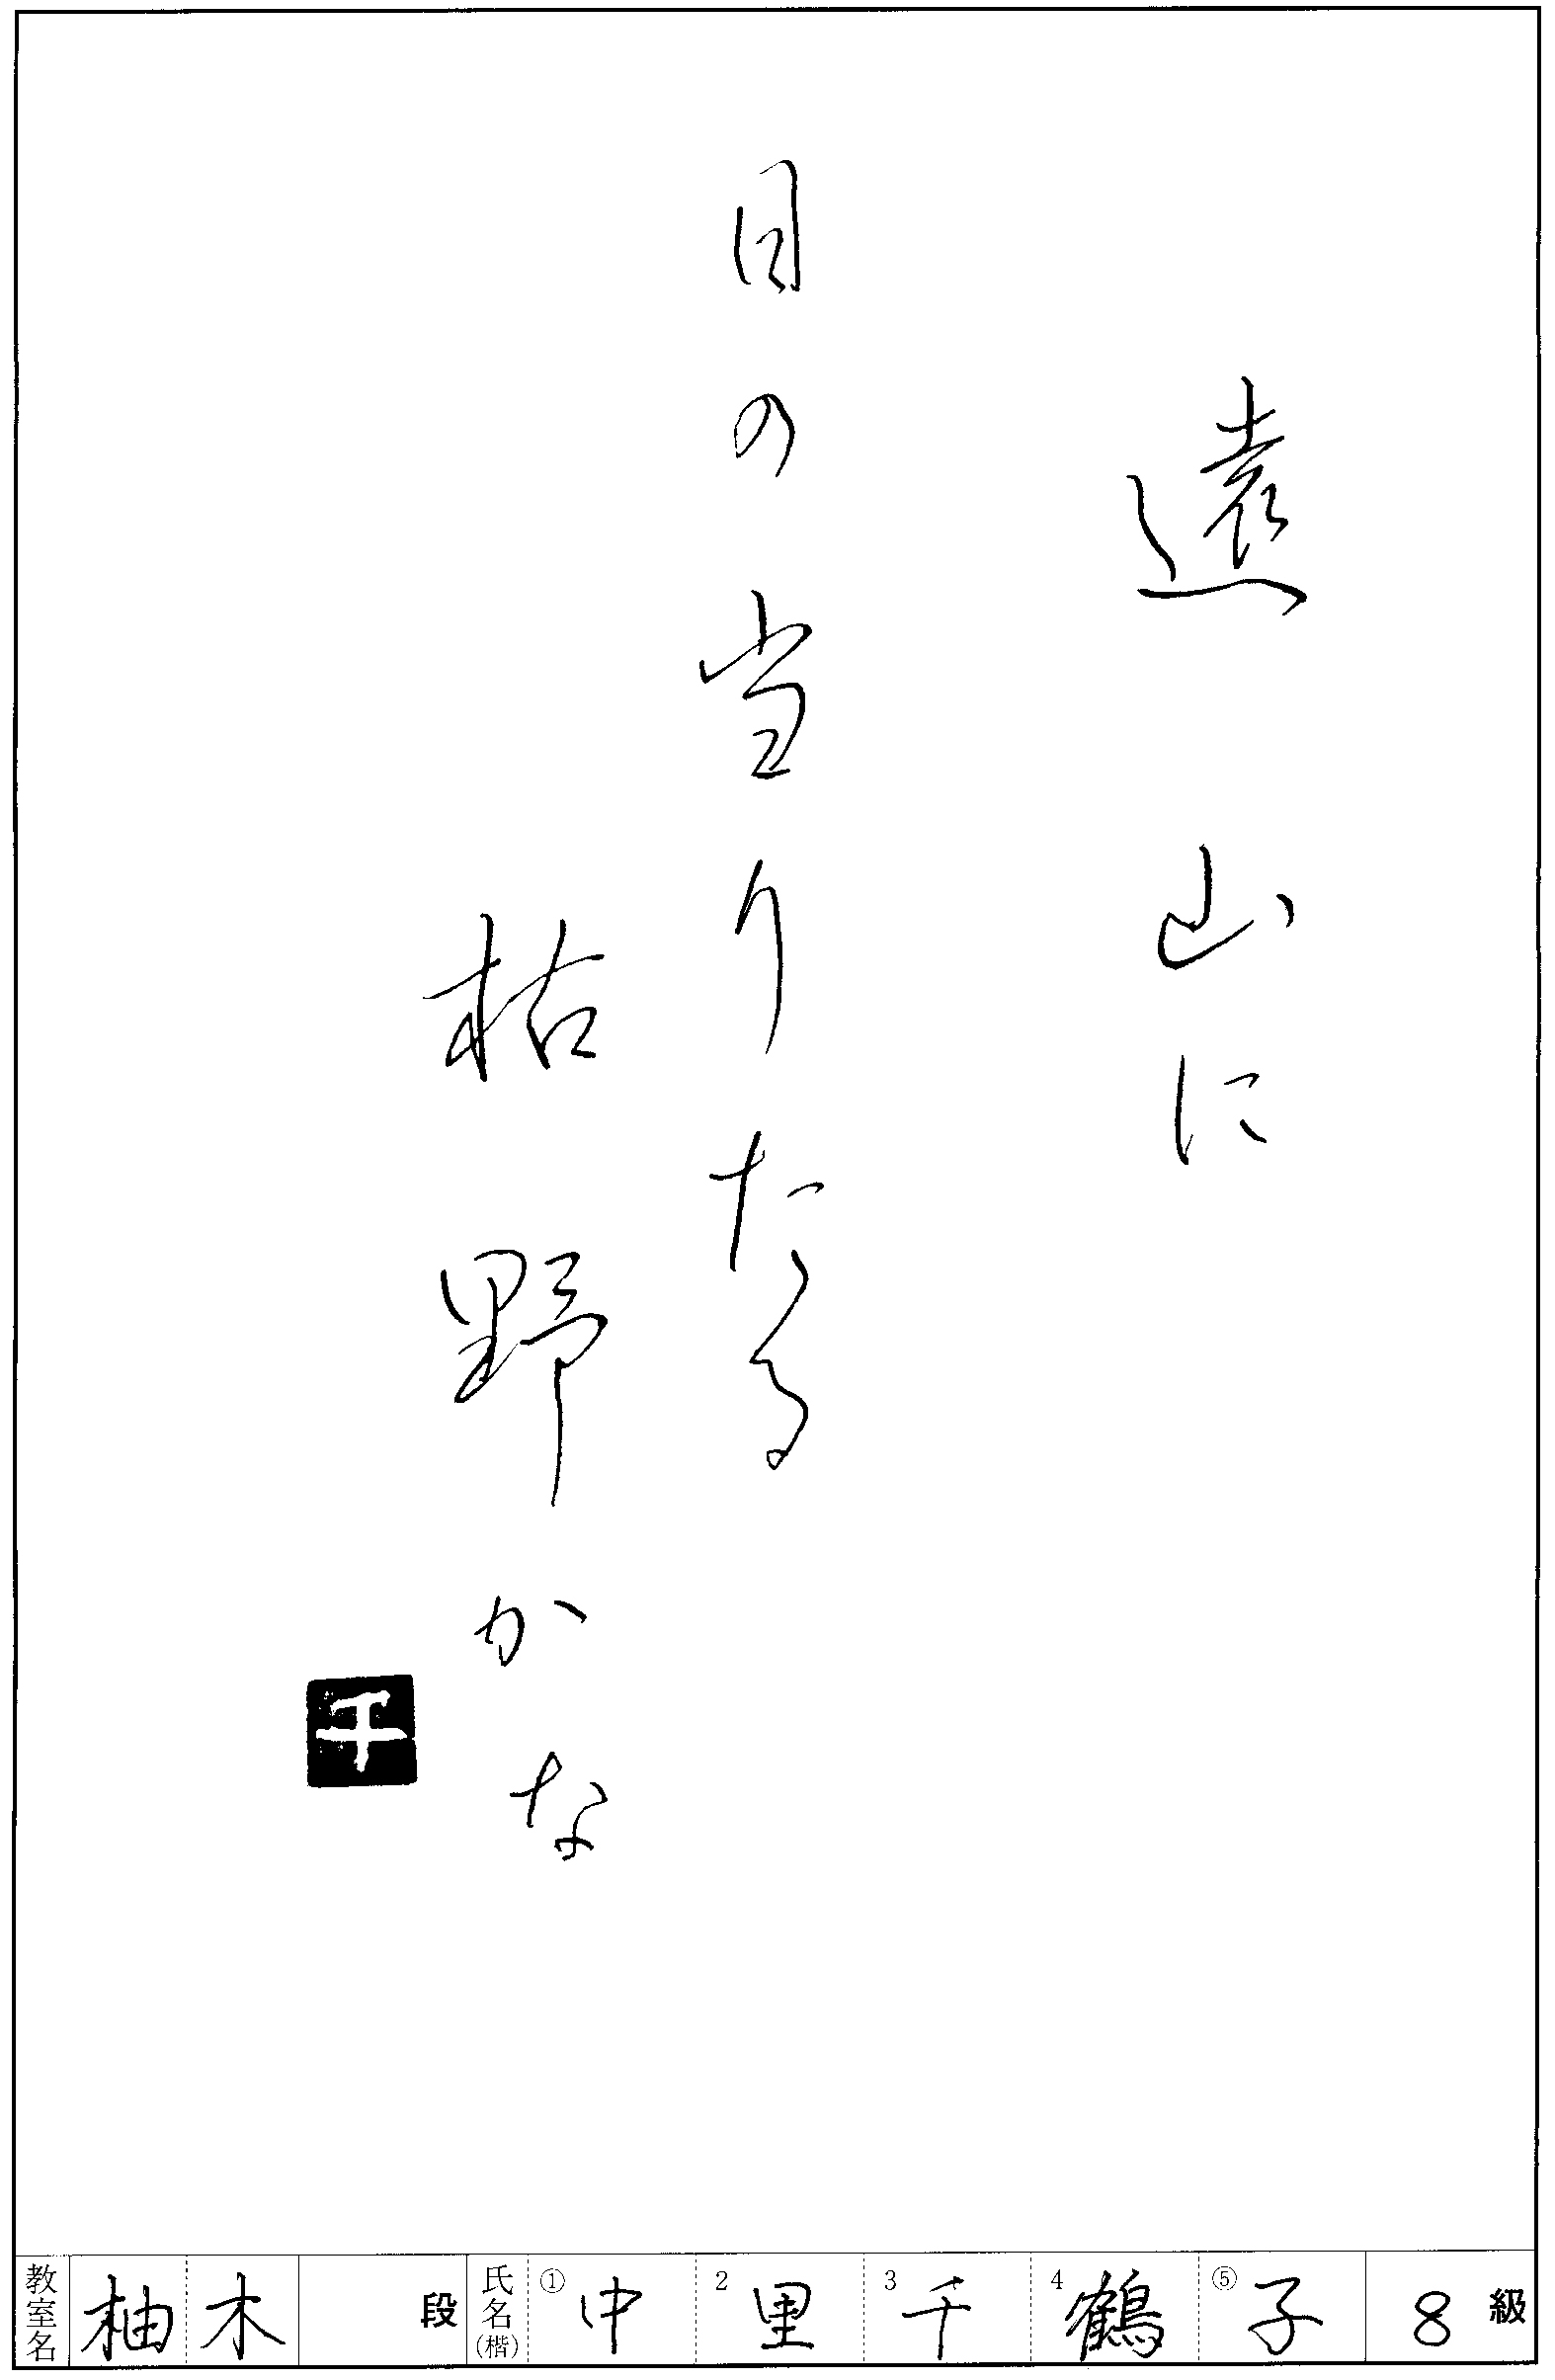 遠山に
日の当りたる
枯野かな
千
教室名 柚木 段 氏名(楷) ①中 2里 3千 4鶴 ⑤子 8級